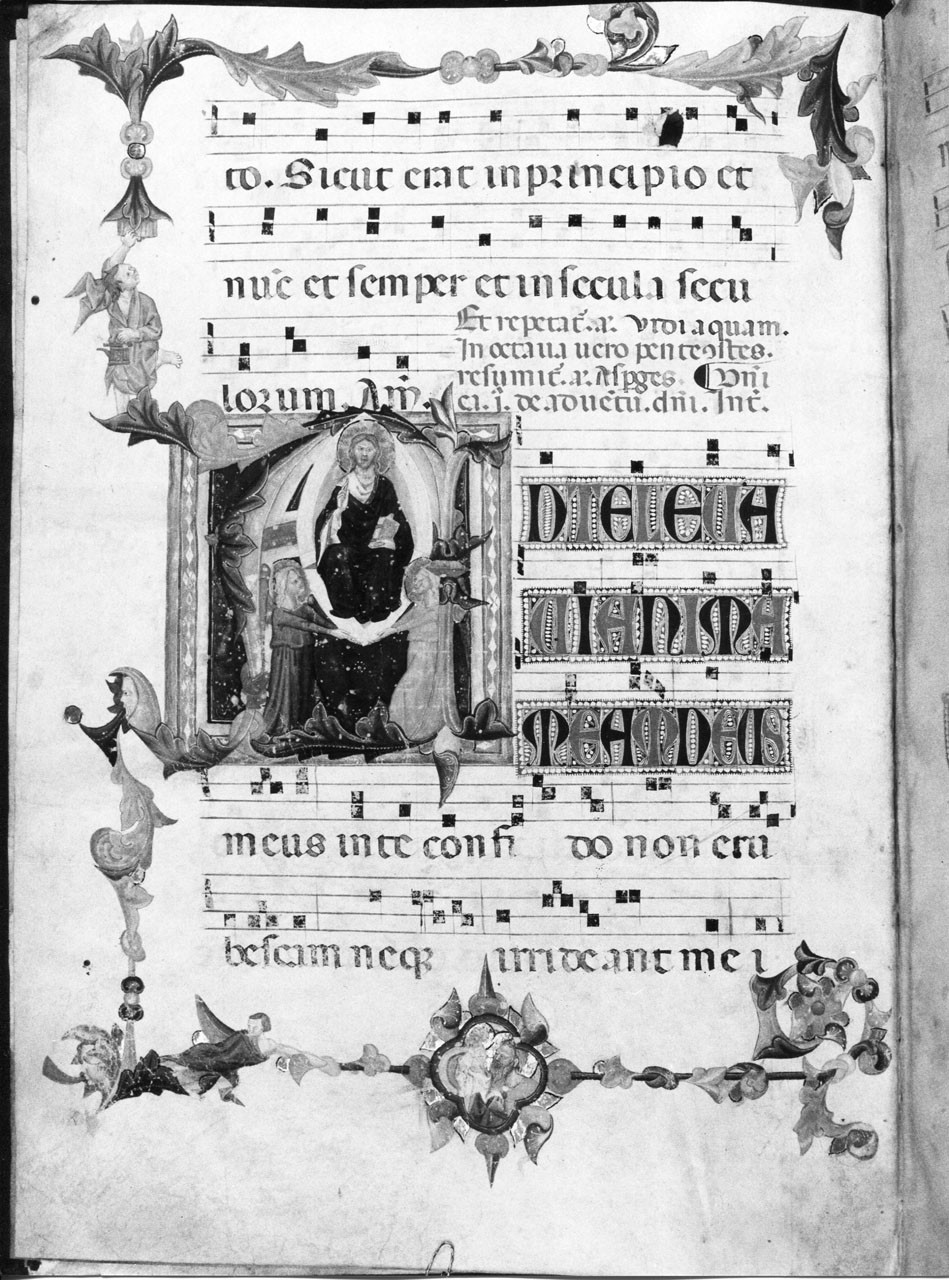 to. Sicut erat in principio et
nūc et semper et in secula secu
Et repetat̄. a̅. Vidi aquam.
In octaua uero pentecostes.
resumit̄. a̅. Asp̱ges. ¶ Dn̄i
lorum. Am̄.
ca. i. de aduētu. dn̄i. Int̄.
AD TE LEUA
UI ANIMA
MEAM DEUS
meus in te confi do non eru
bescam neqꝫ irrideant me i